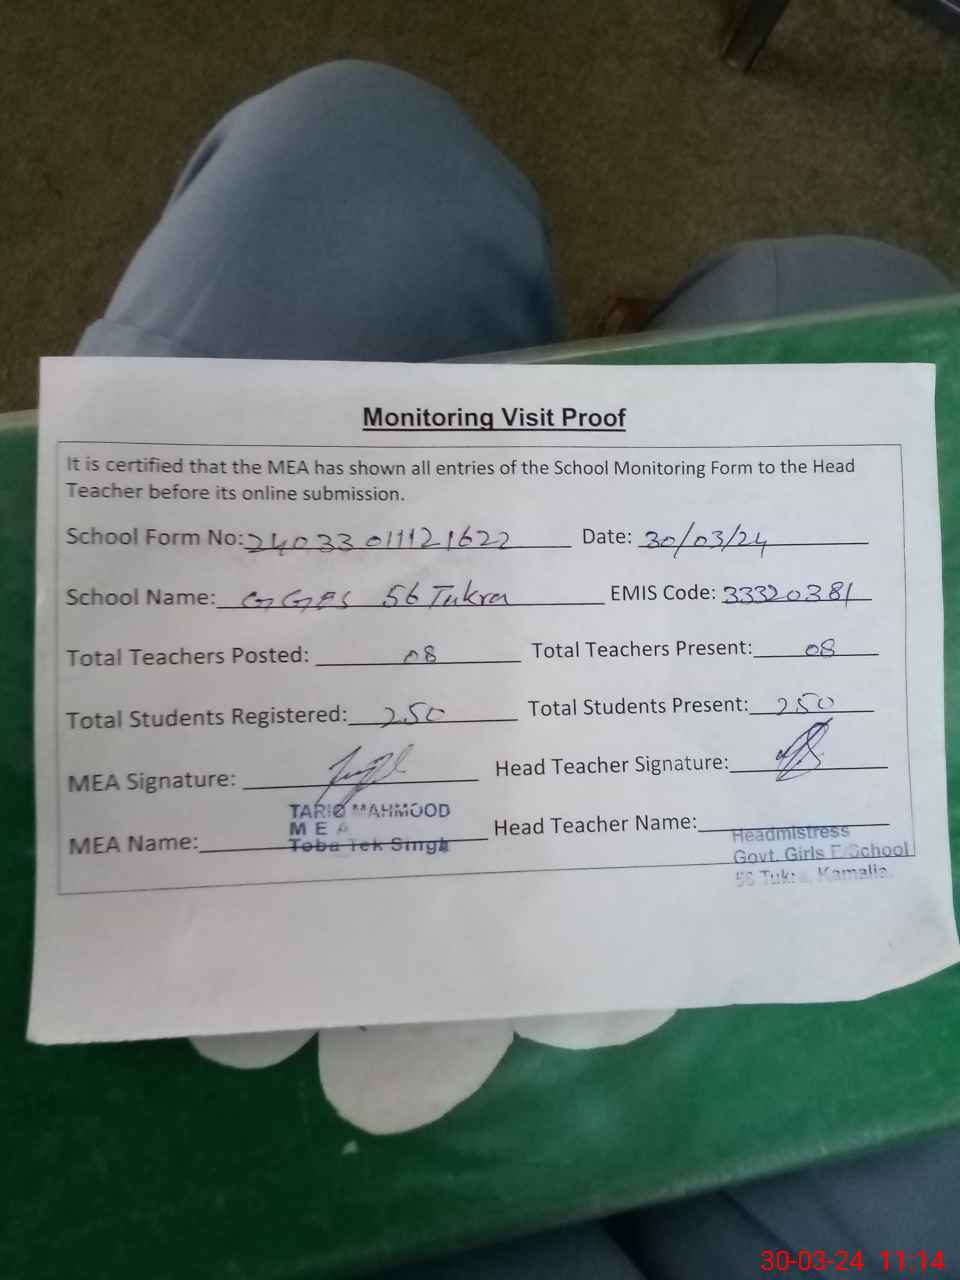 Monitoring Visit Proof
It is certified that the MEA has shown all entries of the School Monitoring Form to the Head
Teacher before its online submission.
School Form No: 24033011121622 Date: 30/03/24
School Name: GGES 56 Tukra EMIS Code: 33320381
Total Teachers Posted: 08 Total Teachers Present: 08
Total Students Registered: 250 Total Students Present: 250
MEA Signature: Head Teacher Signature:
TARIQ MAHMOOD
M E A
MEA Name: Toba Tek Singh Head Teacher Name:
Headmistress
Govt. Girls E/School
56 Tukra, Kamalia.
30-03-24 11:14